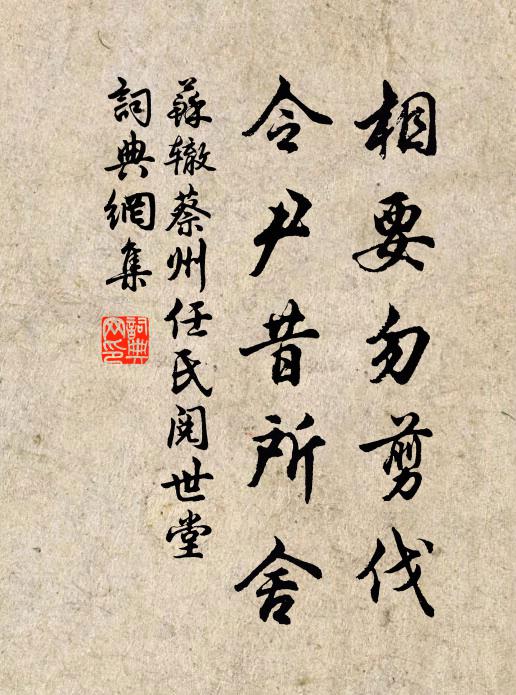 相要勿剪伐
令尹昔所舍
蘇辙蔡州任氏阅世堂
詞典網集
詞典網印